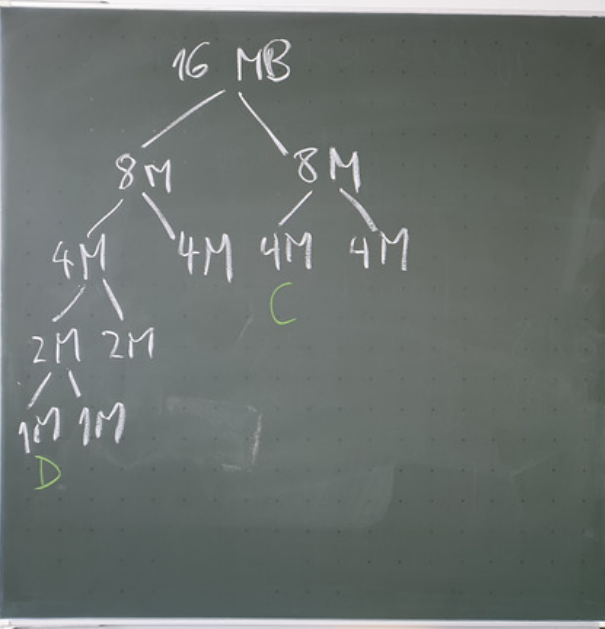 16 MB
8M 8M
4M 4M 4M 4M
C
2M 2M
1M 1M
D